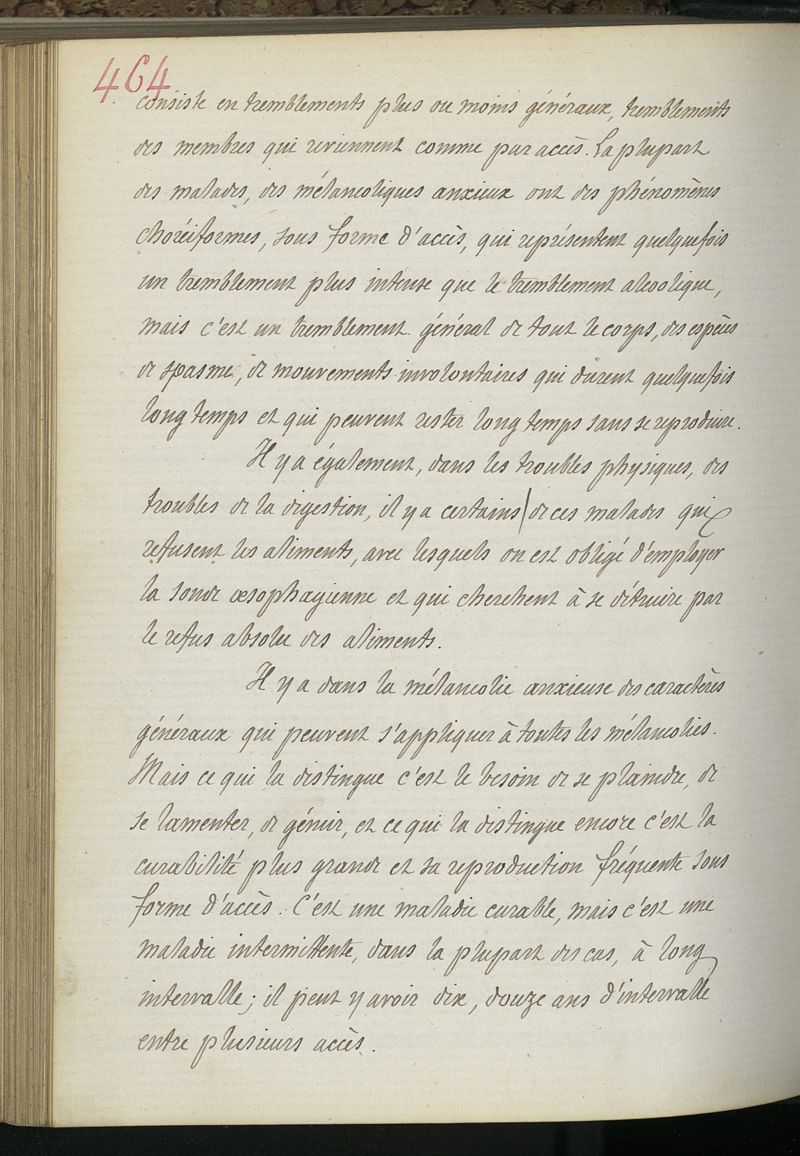 464
consiste en tremblements plus ou moins généraux, tremblements
des membres qui reviennent comme par accès. La plupart
des malades, des mélancoliques anxieux ont des phénomènes
choréiformes, sous forme d'accès, qui représentent quelquefois
un tremblement plus intense que le tremblement alcoolique,
mais c'est un tremblement général de tout le corps, des espèces
de spasme, de mouvements involontaires qui durent quelquefois
longtemps et qui peuvent rester longtemps sans se reproduire.
Il y a également, dans les troubles physiques, des
troubles de la digestion, il y a certains de ces malades qui
refusent les aliments, avec lesquels on est obligé d'employer
la sonde œsophagienne et qui cherchent à se détruire par
le refus absolu des aliments.
Il y a dans la mélancolie anxieuse des caractères
généraux qui peuvent s'appliquer à toutes les mélancolies.
Mais ce qui la distingue c'est le besoin de se plaindre, de
se lamenter, de gémir, et ce qui la distingue encore c'est la
curabilité plus grande et sa reproduction fréquente sous
forme d'accès. C'est une maladie curable, mais c'est une
maladie intermittente, dans la plupart des cas, à long
intervalle ; il peut y avoir dix, douze ans d'intervalle
entre plusieurs accès.